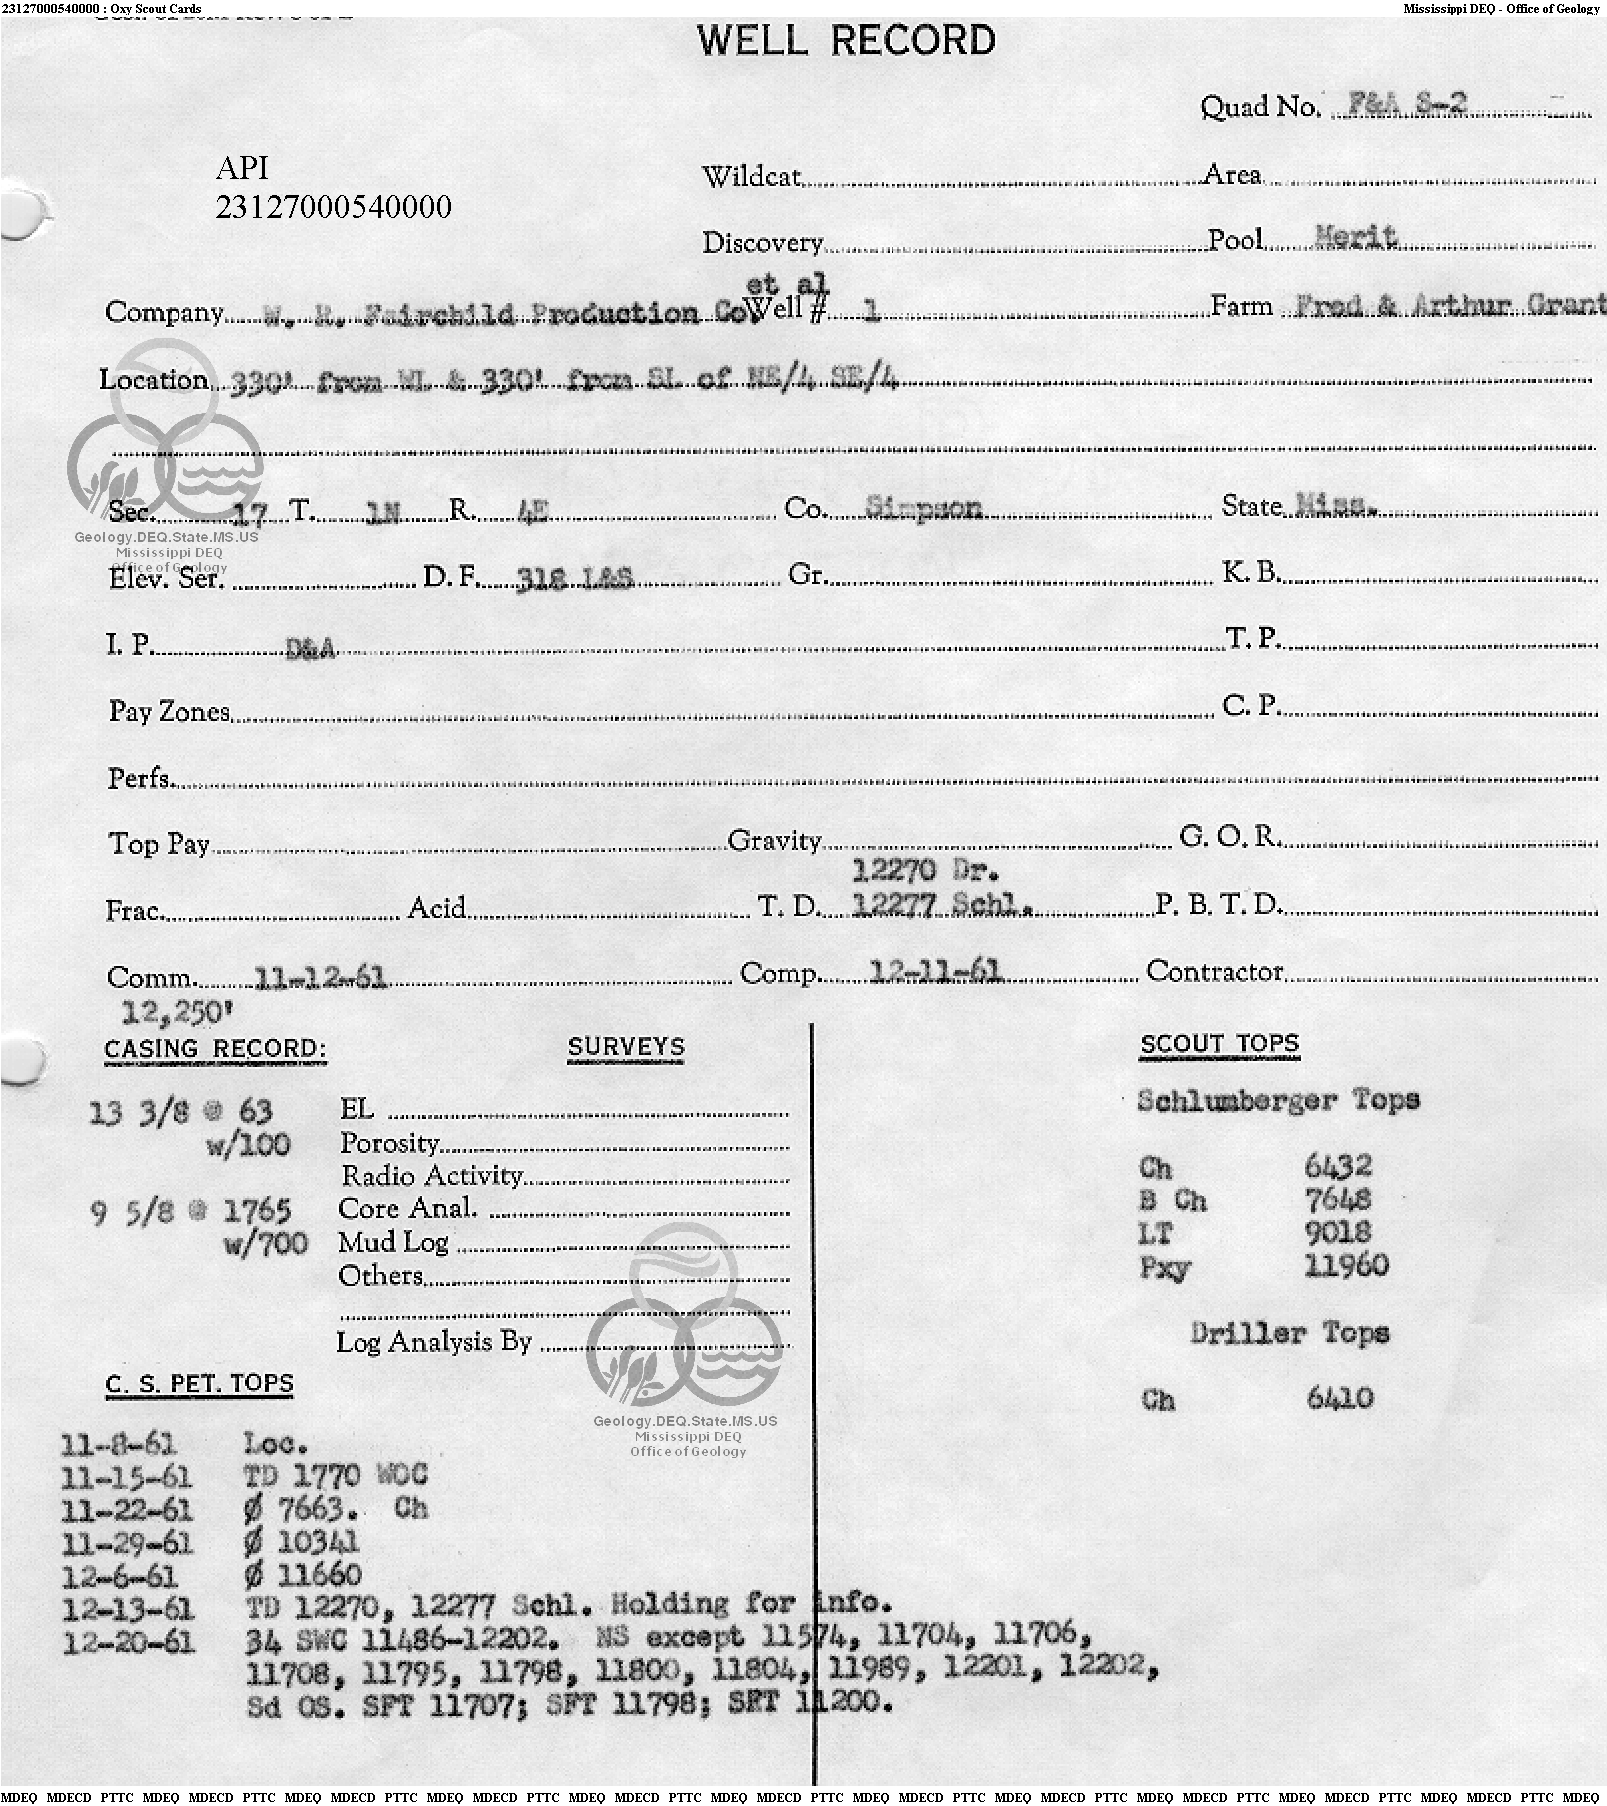 23127000540000 : Oxy Scout Cards Mississippi DEQ - Office of Geology
WELL RECORD
Quad No. F&A S-2
API
23127000540000
Wildcat Area
Discovery Pool Merit
et al
Company W. R. Fairchild Production Co. Well # 1 Farm Fred & Arthur Grant
Location 330' from WL & 330' from SL of NE/4 SE/4
Sec. 17 T. 1N R. 4E Co. Simpson State Miss.
Geology.DEQ.State.MS.US
Mississippi DEQ
Office of Geology
Elev. Ser. D. F. 318 L&S Gr. K. B.
I. P. D&A T. P.
Pay Zones C. P.
Perfs.
Top Pay Gravity G. O. R.
12270 Dr.
Frac. Acid T. D. 12277 Schl. P. B. T. D.
Comm. 11-12-61 Comp. 12-11-61 Contractor
12,250'
CASING RECORD: SURVEYS SCOUT TOPS
13 3/8 @ 63 EL Schlumberger Tops
w/100 Porosity
Radio Activity Ch 6432
9 5/8 @ 1765 Core Anal. B Ch 7648
w/700 Mud Log LT 9018
Others Pxy 11960
Log Analysis By Driller Tops
C. S. PET. TOPS Ch 6410
Geology.DEQ.State.MS.US
Mississippi DEQ
Office of Geology
11-8-61 Loc.
11-15-61 TD 1770 WOC
11-22-61 Ø 7663. Ch
11-29-61 Ø 10341
12-6-61 Ø 11660
12-13-61 TD 12270, 12277 Schl. Holding for info.
12-20-61 34 SWC 11486-12202. NS except 11574, 11704, 11706,
11708, 11795, 11798, 11800, 11804, 11989, 12201, 12202,
Sd OS. SFT 11707; SFT 11798; SFT 11200.
MDEQ MDECD PTTC MDEQ MDECD PTTC MDEQ MDECD PTTC MDEQ MDECD PTTC MDEQ MDECD PTTC MDEQ MDECD PTTC MDEQ MDECD PTTC MDEQ MDECD PTTC MDEQ MDECD PTTC MDEQ MDECD PTTC MDEQ MDECD PTTC MDEQ